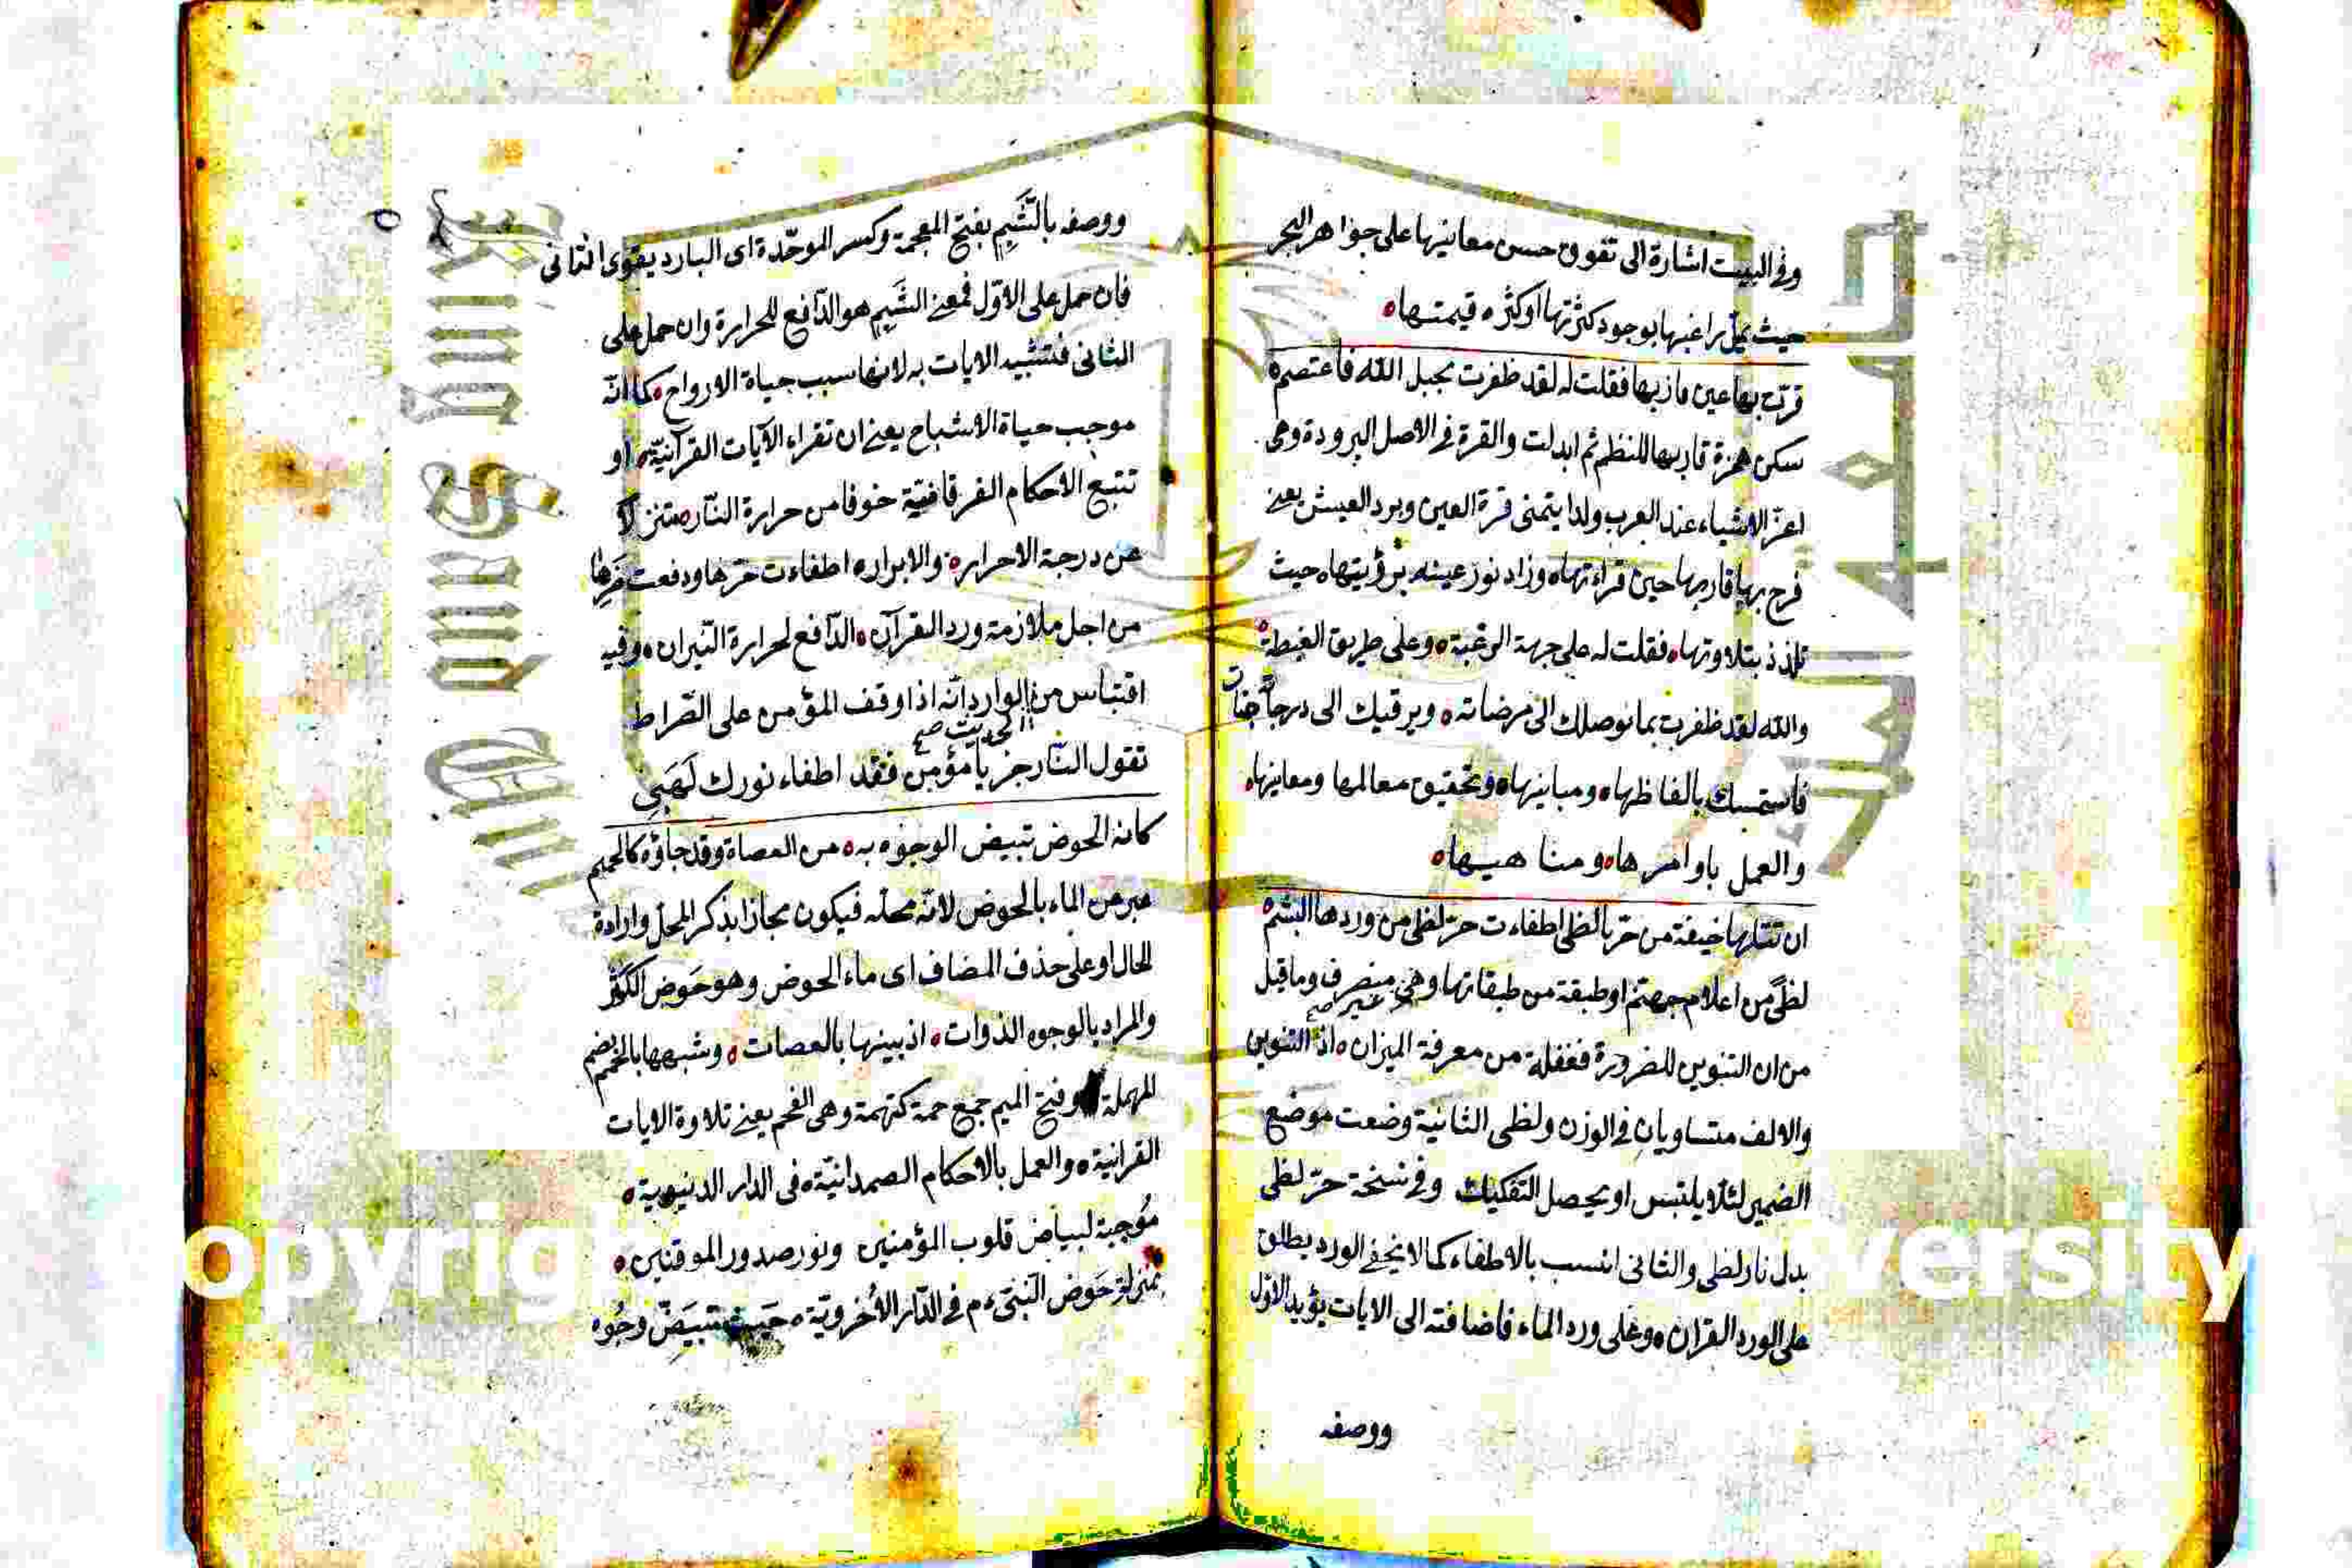 وفى البيت اشارة الى تفوق حسن معانيها على جواهر البحر
حيث يمل راغبها بوجود كثرتها او كثره قيمتها
قرت بها عين قاريها فقلت له لقد ظفرت بحبل الله فاعتصم
سكن همزة قاريها للنظم ثم ابدلت والقرة فى الاصل البرودة وهى
اعز الاشياء عند العرب ولذا يتمنى قرة العين وبرد العيش يعنى
فرح بها قاريها حين قراءتها وزاد نور عينه برؤيتها حيث
تلذذ بتلاوتها فقلت له على جهة الرغبة وعلى طريق الغبطة
والله لقد ظفرت بما توصلك الى مرضاته ويرقيك الى درجات جنات
فاستمسك بالفاظها ومبانيها وتحقيق معالمها ومعانيها
والعمل باوامرها ومناهيها
ان تتلها خيفة من حر نار لظى اطفاءت حر لظى من وردها الشبم
لظى من اعلام جهنم او طبقة من طبقاتها وهى غير منصرف وما قيل
من ان التنوين للضرورة فغفلة من معرفة الميزان اذ التنوين
والالف متساويان فى الوزن ولظى الثانية وضعت موضع
الضمير لئلا يلتبس او يحصل التفكيك وفى نسخة حر لظى
بدل نار لظى والثانى انسب بالاطفاء كما لا يخفى الورد يطلق
على الورد القران وعلى ورد الماء فاضافته الى الايات يؤيد الاول
ووصفه
ووصفه بالشبم بفتح المعجمة وكسر الموحدة اى البارد يقوى الثانى
فان حمل على الاول فمعنى الشبم هو الدافع للحرارة وان حمل على
الثانى فتشبيه الايات به لانها سبب حياة الارواح كما انه
موجب حياة الاشباح يعنى ان تقراء الآيات القرآنية او
تتبع الاحكام الفرقانية خوفا من حرارة النار متنزلا
عن درجة الاحرار والابرار اطفاءت حرها ودفعت ضرها
من اجل ملازمة ورد القرآن الدافع لحرارة النيران وفيه
اقتباس من الحديث الوارد انه اذا وقف المؤمن على الصراط
تقول النار جز يا مؤمن فقد اطفاء نورك لهبى
كانه الحوض تبيض الوجوه به من العصاة وقد جاؤه كالحمم
عبر عن الماء بالحوض لانه محله فيكون مجازا بذكر المحل وارادة
الحال او على حذف المضاف اى ماء الحوض وهو حوض الكوثر
والمراد بالوجوه الذوات اذ بينها بالعصات وشبهها بالحمم بضم
المهملة وفتح الميم جمع حمة كتهمة وهى الفحم يعنى تلاوة الايات
القرانية والعمل بالاحكام الصمدانية فى الدار الدنيوية
موجبة لبياض قلوب المؤمنين ونور صدور الموقنين
بمنزلة حوض النبى ءم فى الدار الأخروية حيث تبيض وجوه